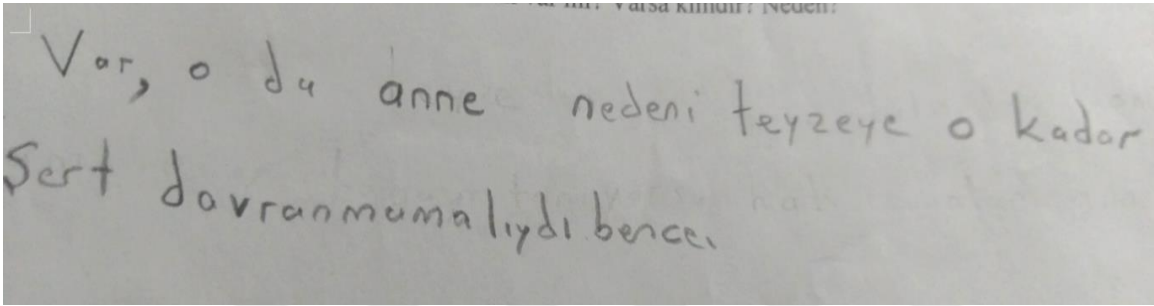 Varsa kimdir? Neden?
Var, o da anne nedeni teyzeye o kadar
Sert davranmamalıydı bence.